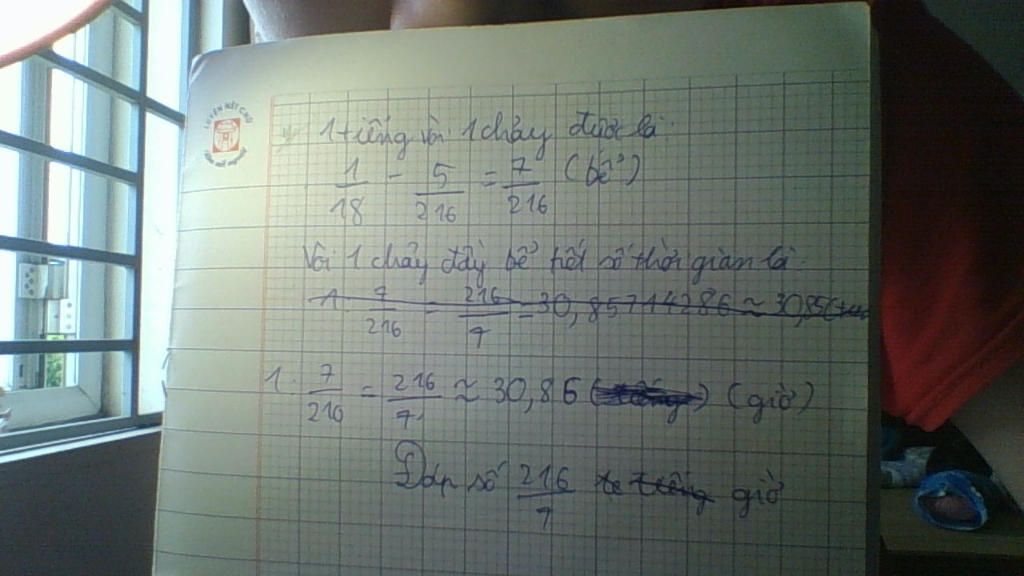 LUYỆN NÉT CHỮ
1 tiếng vòi 1 chảy được là:
1/18 - 5/216 = 7/216 (bể)
Vòi 1 chảy đầy bể hết số thời gian là:
1 : 7/216 = 216/7 = 30,85714286 ≈ 30,85
1 : 7/216 = 216/7 ≈ 30,86 (giờ)
Đáp số 216/7 giờ